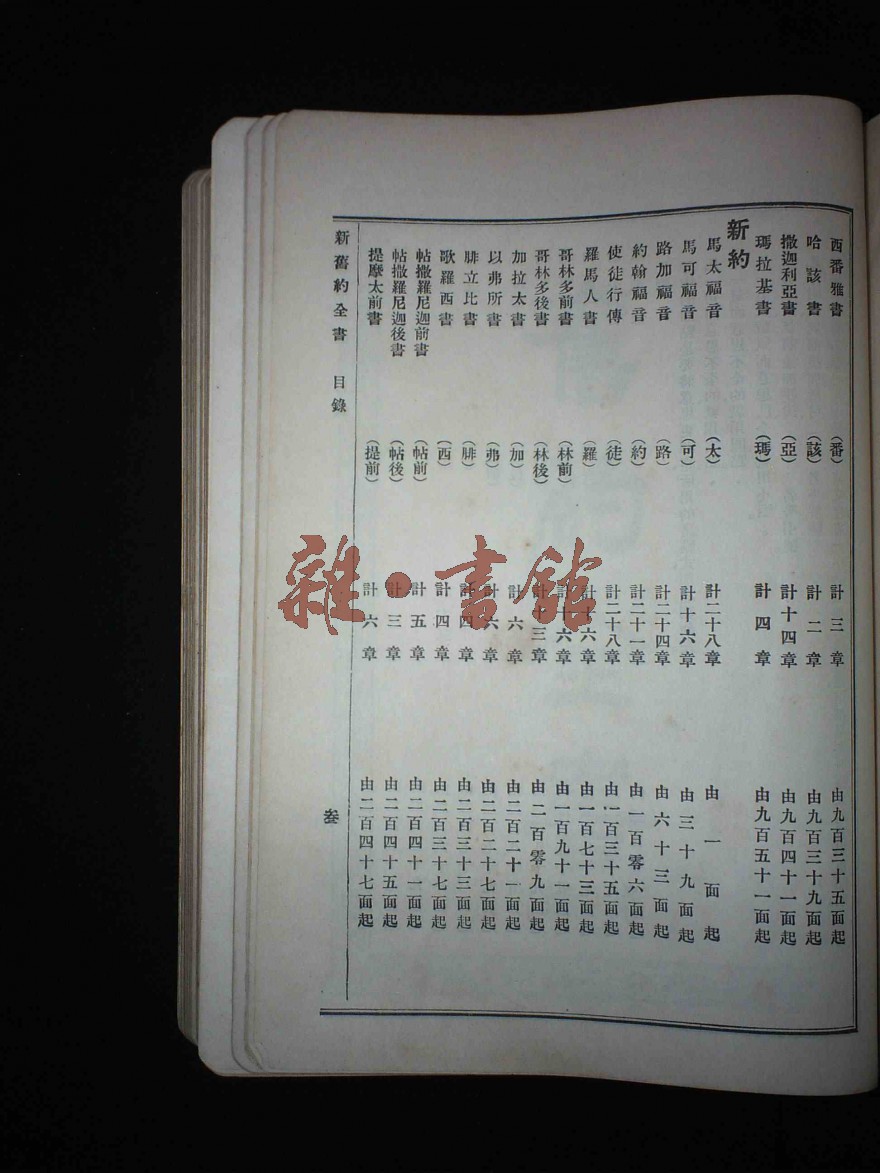 西番雅書 (番) 計三章 由九百三十五面起
哈該書 (該) 計二章 由九百三十九面起
撒迦利亞書 (亞) 計十四章 由九百四十一面起
瑪拉基書 (瑪) 計四章 由九百五十一面起
新約
馬太福音 (太) 計二十八章 由一面起
馬可福音 (可) 計十六章 由三十九面起
路加福音 (路) 計二十四章 由六十三面起
約翰福音 (約) 計二十一章 由一百零六面起
使徒行傳 (徒) 計二十八章 由一百三十五面起
羅馬人書 (羅) 計十六章 由一百七十三面起
哥林多前書 (林前) 計十六章 由一百九十一面起
哥林多後書 (林後) 計十三章 由二百零九面起
加拉太書 (加) 計六章 由二百二十一面起
以弗所書 (弗) 計六章 由二百二十七面起
腓立比書 (腓) 計四章 由二百三十三面起
歌羅西書 (西) 計四章 由二百三十七面起
帖撒羅尼迦前書 (帖前) 計五章 由二百四十一面起
帖撒羅尼迦後書 (帖後) 計三章 由二百四十五面起
提摩太前書 (提前) 計六章 由二百四十七面起
新舊約全書 目錄 叁
雜·書館